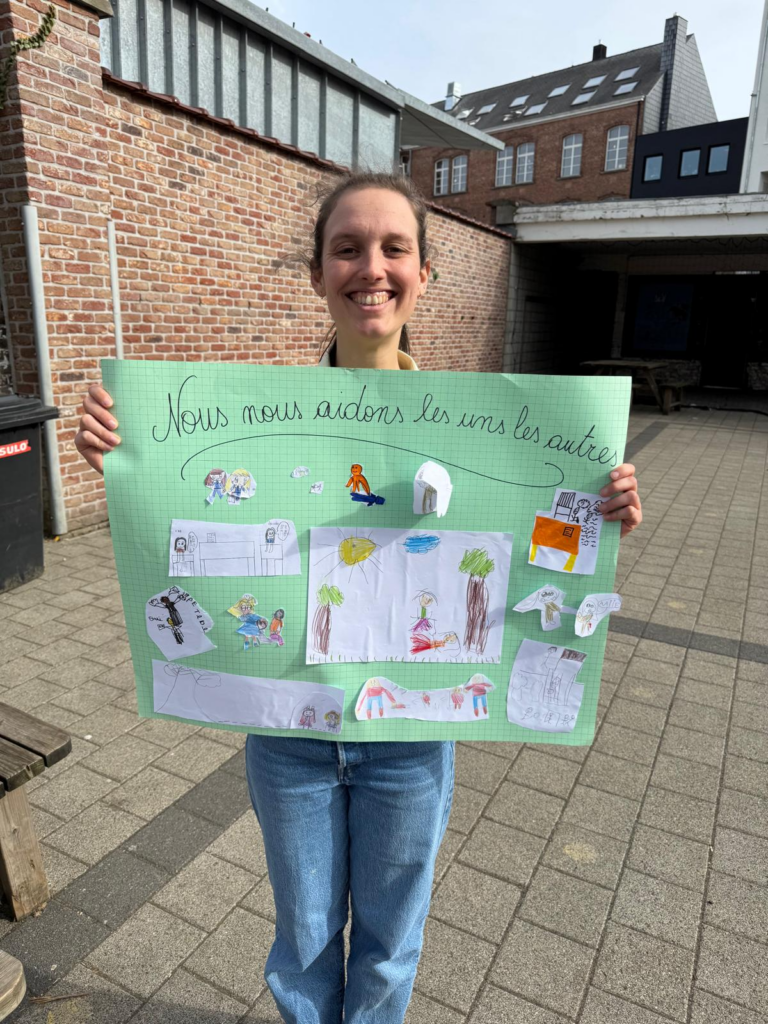 Nous nous aidons les uns les autres
SULO